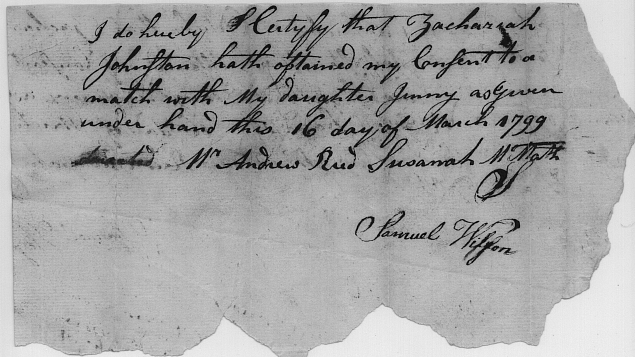 I do hereby Certyfy that Zachariah
Johnston hath obtained my Consent to a
match with My daughter Jenny as Given
under hand this 16 day of March 1799
Mr Andrew Reed Susanah McMath
Samuel Wilson